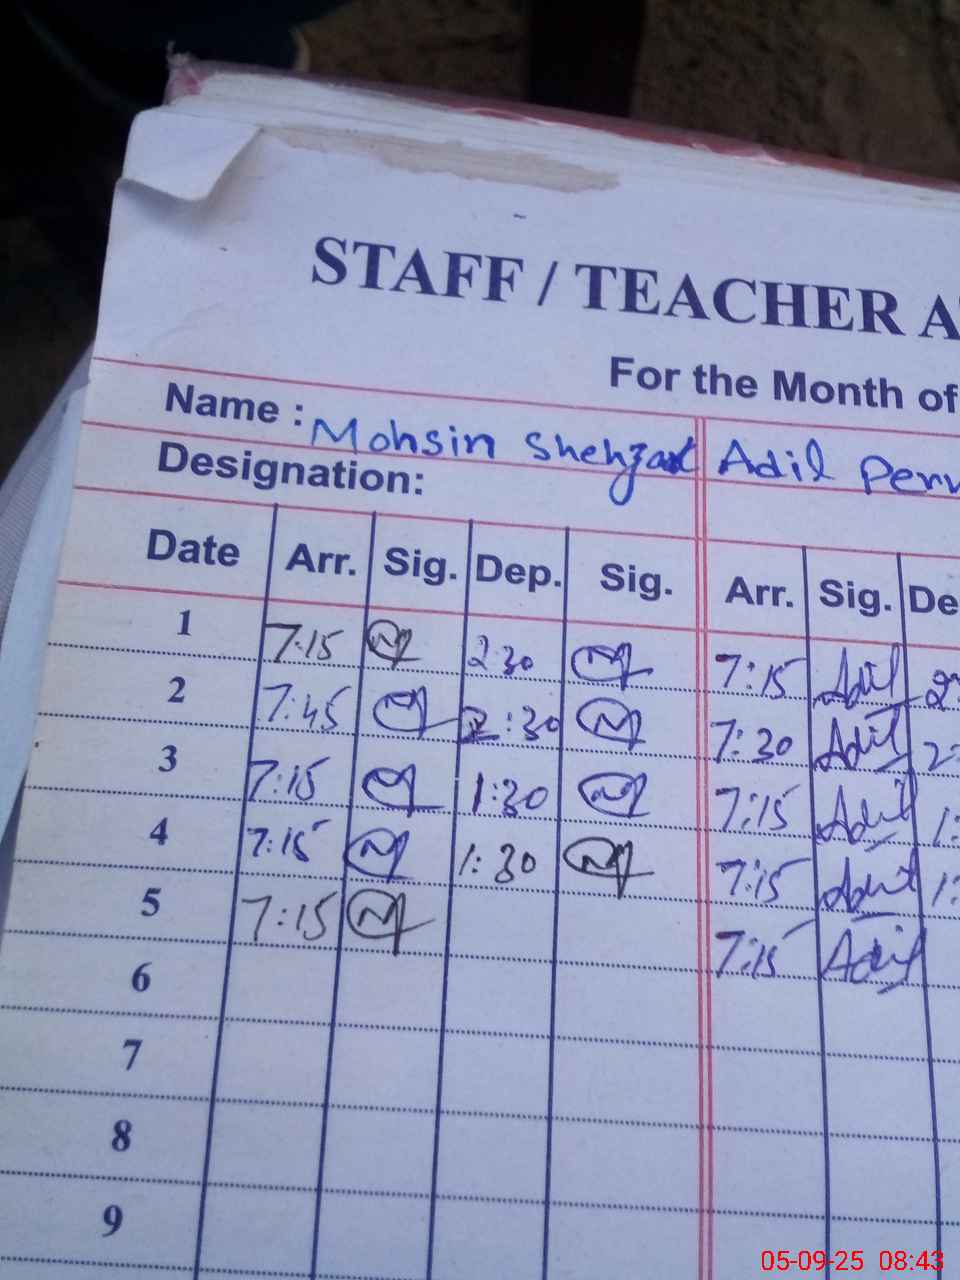 STAFF / TEACHER A
For the Month of
Name : Mohsin Shehzad Adil Perv
Designation:
Date Arr. Sig. Dep. Sig. Arr. Sig. De
1 7:15 2 30 7:15 Adil 2
2 7:45 2:30 7:30 Adil 2:
3 7:15 1:30 7:15 Adil 1:
4 7:15 1:30 7:15 Adil 1:
5 7:15 7:15 Adil
6
7
8
9
05-09-25 08:43